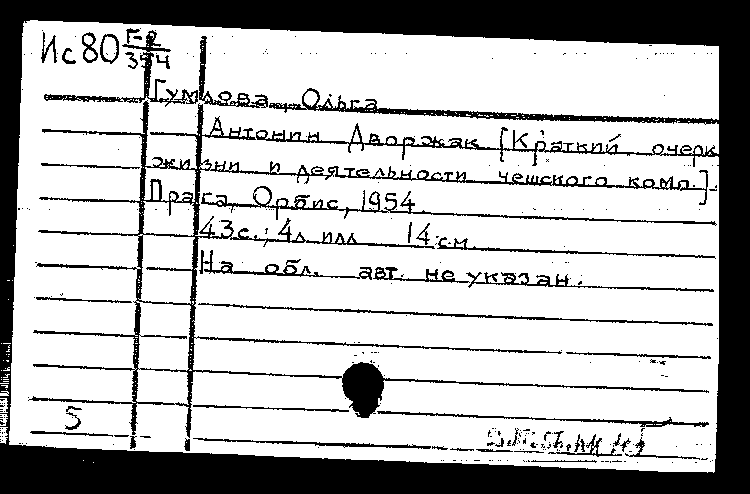 Ис80 Г-2/354
Гумлова, Ольга
Антонин Дворжак [Краткий очерк
жизни и деятельности чешского комп.].
Прага, Орбис, 1954.
43с.; 4л илл 14см
На обл. авт. не указан.
5